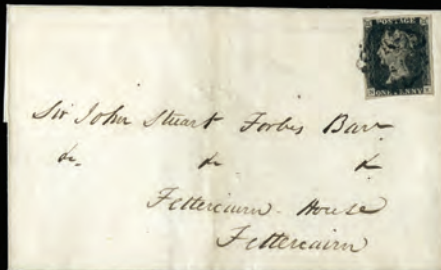 POSTAGE
ONE PENNY
Sir John Stuart Forbes Bar.t
&c. &c &c
Fettercairn House
Fettercairn